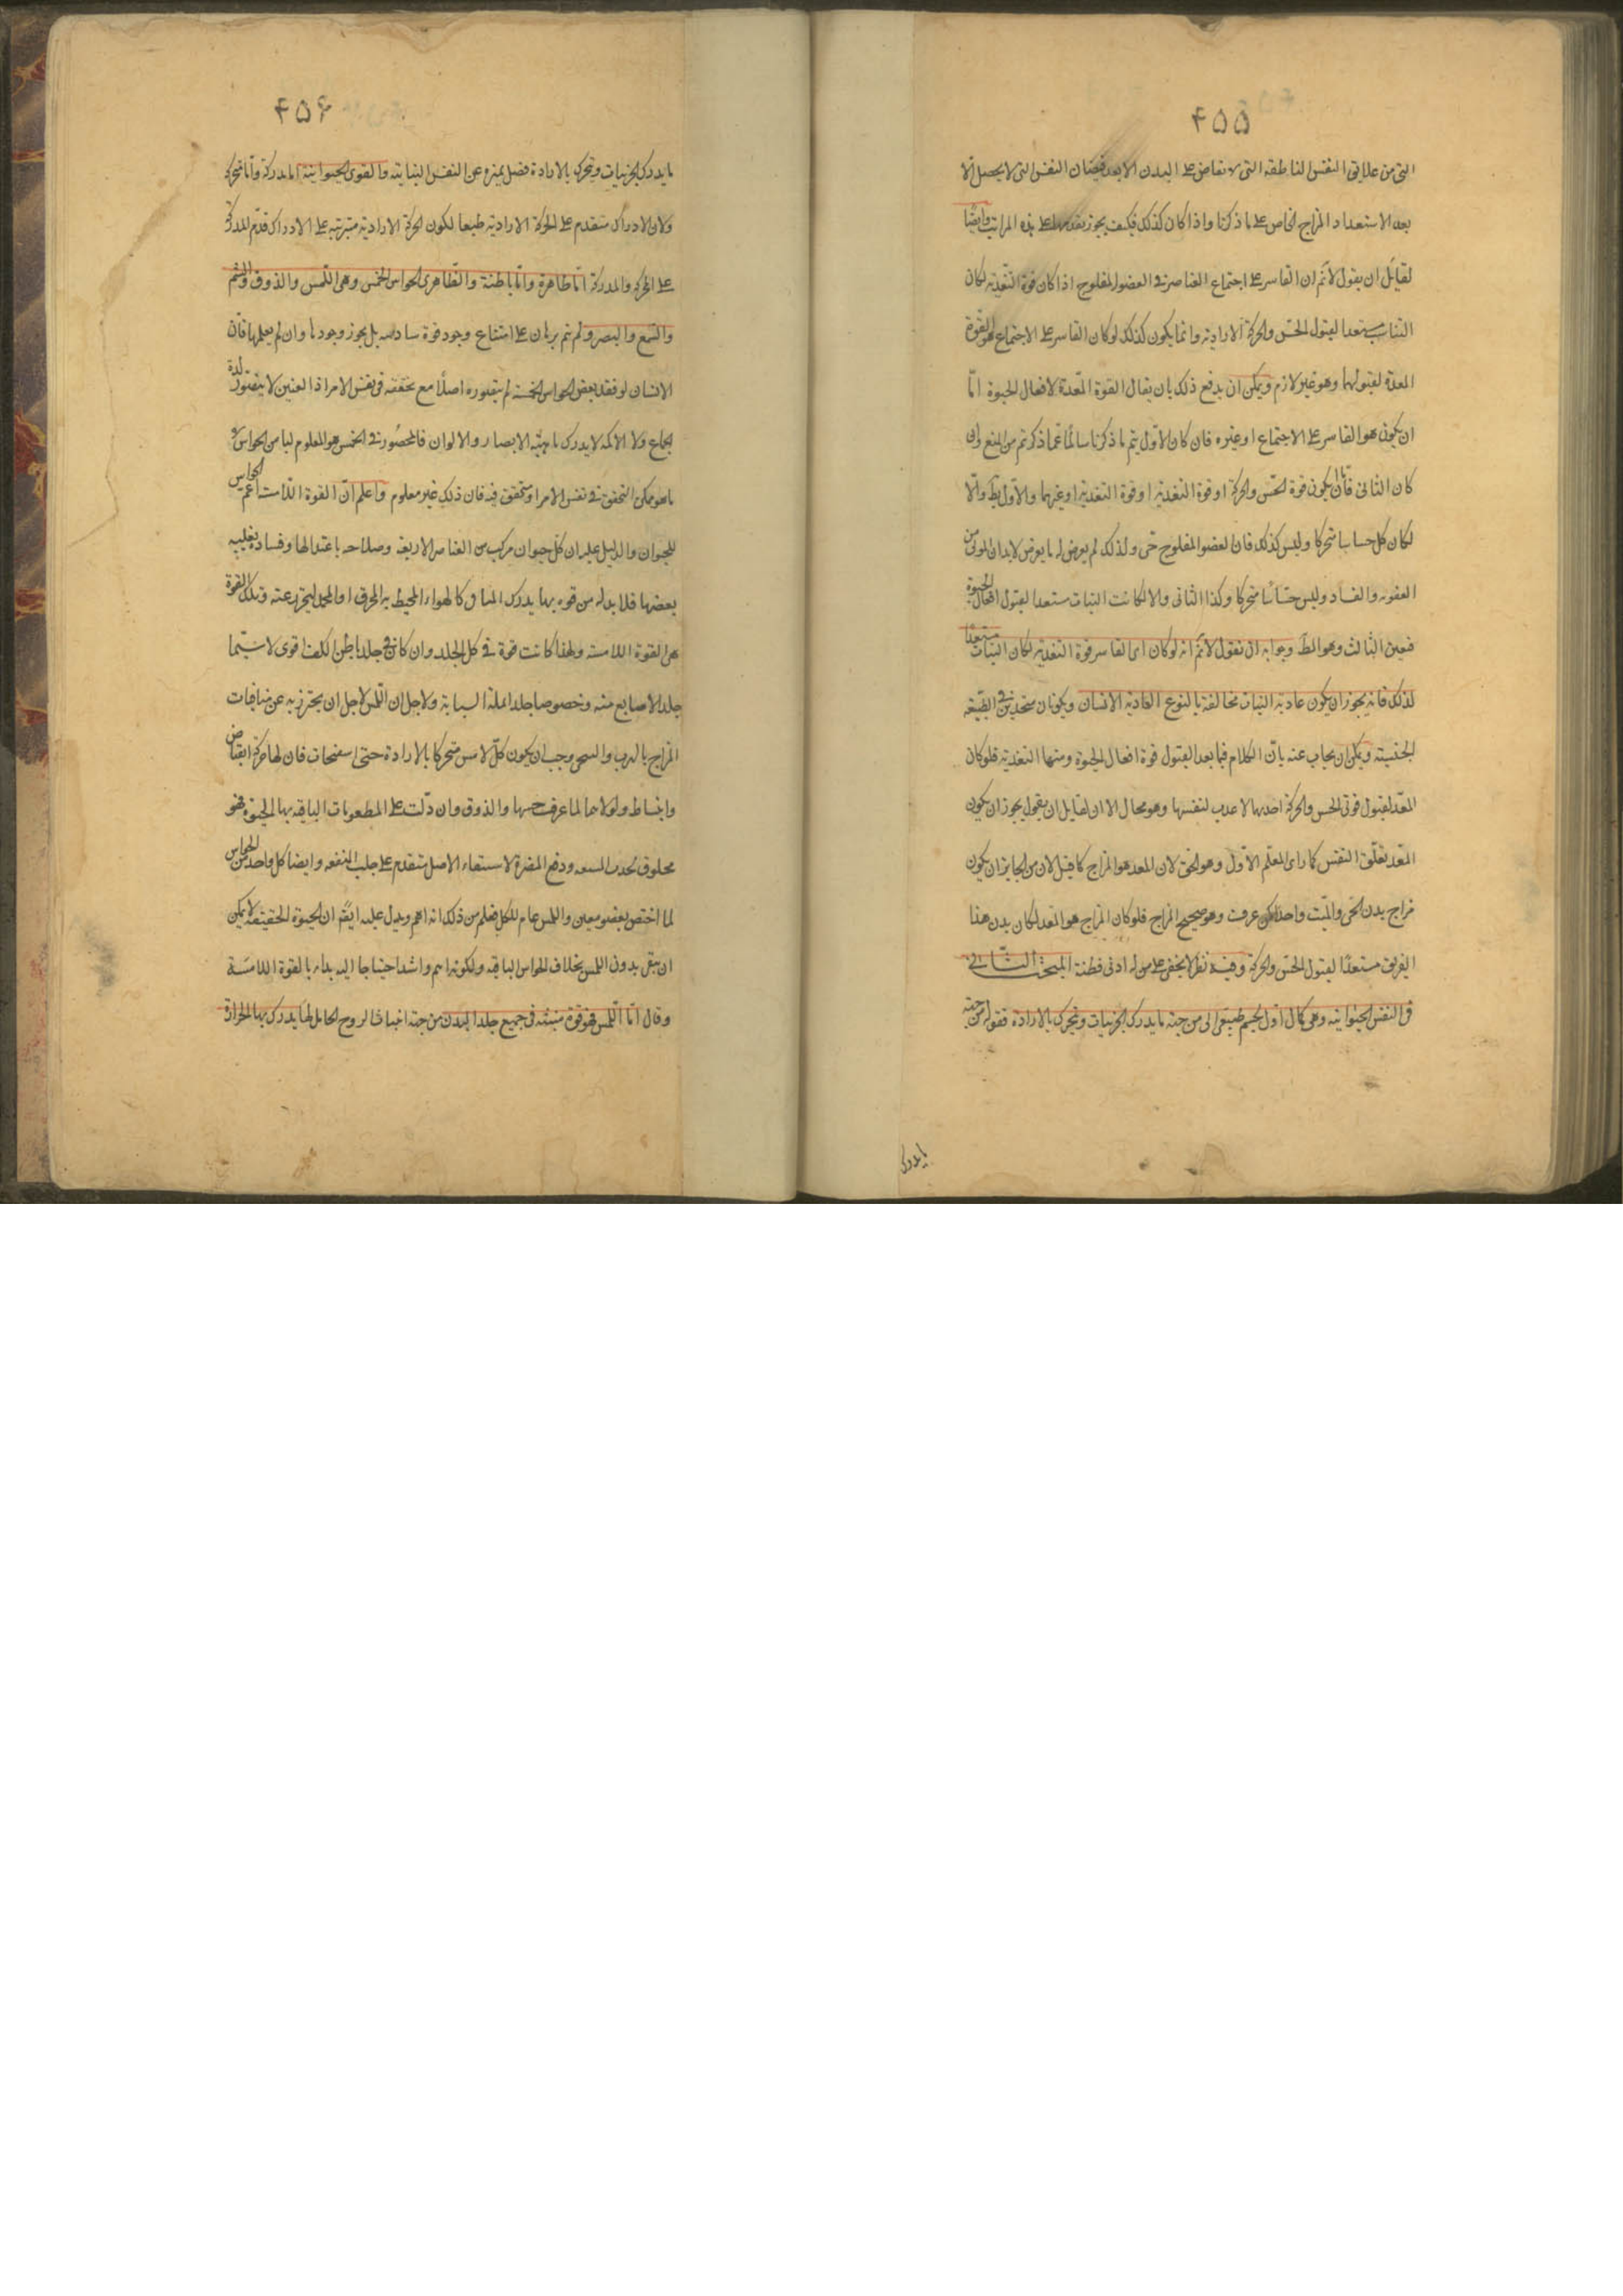 ٤٥٥
التى من علايق النفس الناطقة التى لا تفاض على البدن الا بعد فيضان النفس التى لا يحصل الا
بعد الاستعداد المزاج الخاص على ما ذكرنا واذا كان كذلك فكيف يجوز تقدمها على هذه المراتب وايضا
لقايل ان يقول لانم ان القاسر على اجتماع العناصر فى العضو المفلوج اذا كان قوة التغذية لكان
النبات مستعدا لقبول الحس والحركة الارادية وانما يكون كذلك لو كان القاسر على الاجتماع هو القوة
المعدة لقبولهما وهو غير لازم ويمكن ان يدفع ذلك بان يقال القوة المعدة لافعال الحيوة اما
ان يكون هو القاسر على الاجتماع او غيره فان كان الاول يتم ما ذكرنا سالما عما ذكرتم من المنع وان
كان الثانى فاما ان يكون قوة الحس والحركة او قوة التغذية او قوة التغذية او غيرهما والاول بط والا
لكان كل حساسا متحركا وليس كذلك فان لعضو المفلوج حى ولذلك لم يعرض له ما يعرض لابدان الموتى من
العفونه والفساد وليس حساسا متحركا وكذا الثانى والا لكانت النبات مستعدا لقبول افعال الحيوة
فعين الثالث وهو المط وجوابه ان نقول لانم انه لو كان اى القاسر قوة التغذية لكان النبات مستعدا
لذلك فانه يجوز ان يكون غاذية النبات مخالفة بالنوع لغاذية الانسان ويكونان متحدين فى الطبيعة
الجنسية ويمكن ان يجاب عنه بان الكلام فيما بعد لقبول قوة افعال الحيوة ومنها التغذية فلو كان
المعد لقبول قوتى الحس والحركة احديهما لاعدت لنفسها وهو محال الا ان لقايل ان يقول يجوز ان يكون
المعد تعلق النفس كما راى المعلم الاول وهو الحق لان المعد هو المزاج كما قيل لان من الجايز ان يكون
مزاج بدن الحى والميت واحدا كمن عرفت وهو صحيح المزاج فلو كان المزاج هو المعد لكان بدن هذا
الغريق مستعدا لقبول الحس والحركة وفيه نظر لا يخفى على من له ادنى فطنة المبحث الثانى
فى النفس الحيوانية وهى كمال اول لجسم طبيعى الى من جهة ما يدرك الجزئيات ويتحرك بالارادة فقوله من جهة
ما يدرك
٤٥٦
ما يدرك الجزئيات ويتحرك بالارادة فصل يميزه عن النفس النباتية والقوى الحيوانية اما مدركة واما محركة
ولان الادراك متقدم على الحركة الارادية طبعا لكون الحركة الارادية مترتبة على الادراك قدم المدركة
على المحركة والمدركة اما ظاهرة واما باطنة والظاهرى الحواس الخمس وهى اللمس والذوق والشم
والسمع والبصر ولم يتم برهان على امتناع وجود قوة سادسه بل يجوز وجودها وان لم يعلمها فان
الانسان لو فقد بعض الحواس الخمسة لم يتصوره اصلا مع تحققه فى نفس الامر اذ العنين لا يتصور لذة
الجماع ولا الاكمه لا يدرك ماهية الابصار والالوان فالمحصور فى الخمس هو المعلوم لنا من الحواس لا
ما هو ممكن التحقق فى نفس الامر او متحقق فيه فان ذلك غير معلوم واعلم ان القوة اللامسة اعم الحواس
للحيوان والدليل عليه ان كل حيوان مركب من العناصر الاربعة وصلاحه باعتدالها وفساده بغلبة
بعضها فلا بد له من قوه بها يدرك المنافى كالهواء المحيط به المحرق او المجمد ليتحرز عنه وتلك القوة
هى القوة اللامسة ولهذا كانت قوة فى كل الجلد وان كان فى جلد باطن الكف اقوى لا سيما
جلد الاصابع منه وخصوصا جلد انملة السبابة ولاجل ان اللمس لاجل ان يحترز به عن منافيات
المزاج بالهرب والسعى وجب ان يكون كل لامس متحركا بالارادة حتى اسفنجات فان لها حركة انقباض
وانبساط ولولاهما لما عرف حسها والذوق وان دلت على المطعومات الباقية بها الحيوة فهو
مخلوق لجذب المنفعه ودفع المضرة لاستبقاء الاصل متقدم على جلب المنفعه وايضا كل واحد من الحواس
لما اختص بعضو معين واللمس عام للكل فعلم من ذلك انه اهم ويدل عليه ايضا ان الحيوة الحقيقة لا يمكن
ان يبقى بدون اللمس بخلاف الحواس الباقية ولكونه اهم واشد احتياجا اليه بداء بالقوة اللامسة
وقال اما اللمس فهو قوة منبثه فى جميع جلد البدن من جهة انبثاث الروح الحامل لها يدرك بها الحرارة